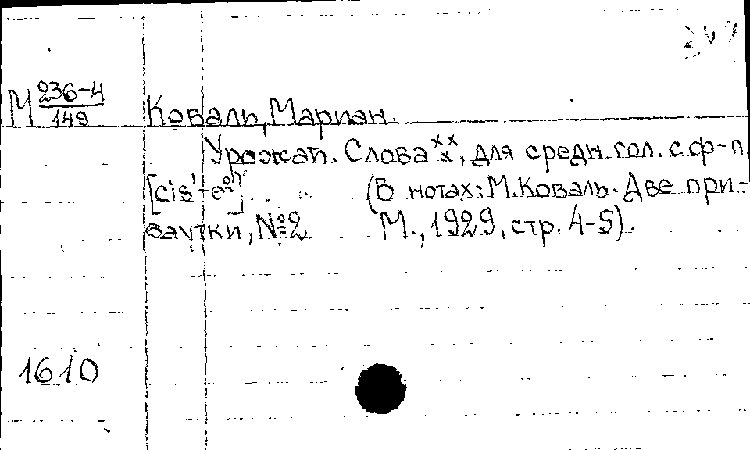 М 236-4/149 Коваль, Мариан.
Урожай. Слова ***, для средн. гол. с ф-п.
[cis¹-e²] (В нотах: М. Коваль. Две при-
баутки, №2 М., 1929, стр. 4-5).
1610